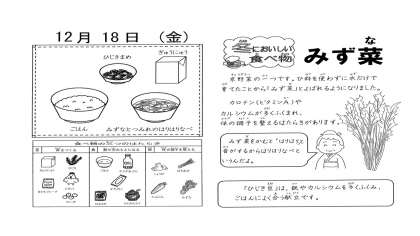 12月 18日 (金)
ひじきまめ
ぎゅうにゅう
ごはん
みずなとつみれのはりはりなべ
食べ物の3つのはたらき
冬においしい
食べ物
みず菜
な
京野菜の一つです。ひ料を使わずに水だけで
育てたことから「みず菜」とよばれるようになりました。
カロテン(ビタミンA)や
カルシウムが多くふくまれ、
体の調子を整えるはたらきがあります。
みず菜をかむと「はりはり」と
音がするからはりはりなべと
いうんだよ。
「ひじき豆」は、鉄やカルシウムを多くふくみ、
ごはんによく合う献立です。